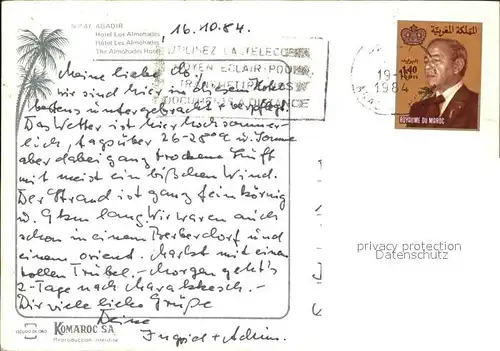 N° 47 AGADIR
Hotel Los Almohades
Hôtel Les Almohades
The Almohades Hotel
16.10.84.
UTILISEZ LA TELECOPIE
MOYEN ECLAIR POUR
DOCUMENTS
19-1
1984
المملكة المغربية
1,40
ROYAUME DU MAROC
Meine liebe
wir sind hier in diesem Hotel
bestens untergebracht u. verpflegt.
Das Wetter ist hier hochsommer-
lich, tagsüber 26-28° u. Sonne
aber dabei ganz trockene Luft
mit meist ein bißchen Wind.
Der Strand ist ganz feinkörnig
u. 9 km lang. Wir waren auch
schon in einem Berberdorf und
einem orient. Markt mit einem
tollen Trubel. - Morgen geht's
2-Tage nach Marakkesch. -
Dir viele liebe Grüße
Deine
Ingrid + Achim.
privacy protection
Datenschutz
KOMAROC SA
Reproduction interdite